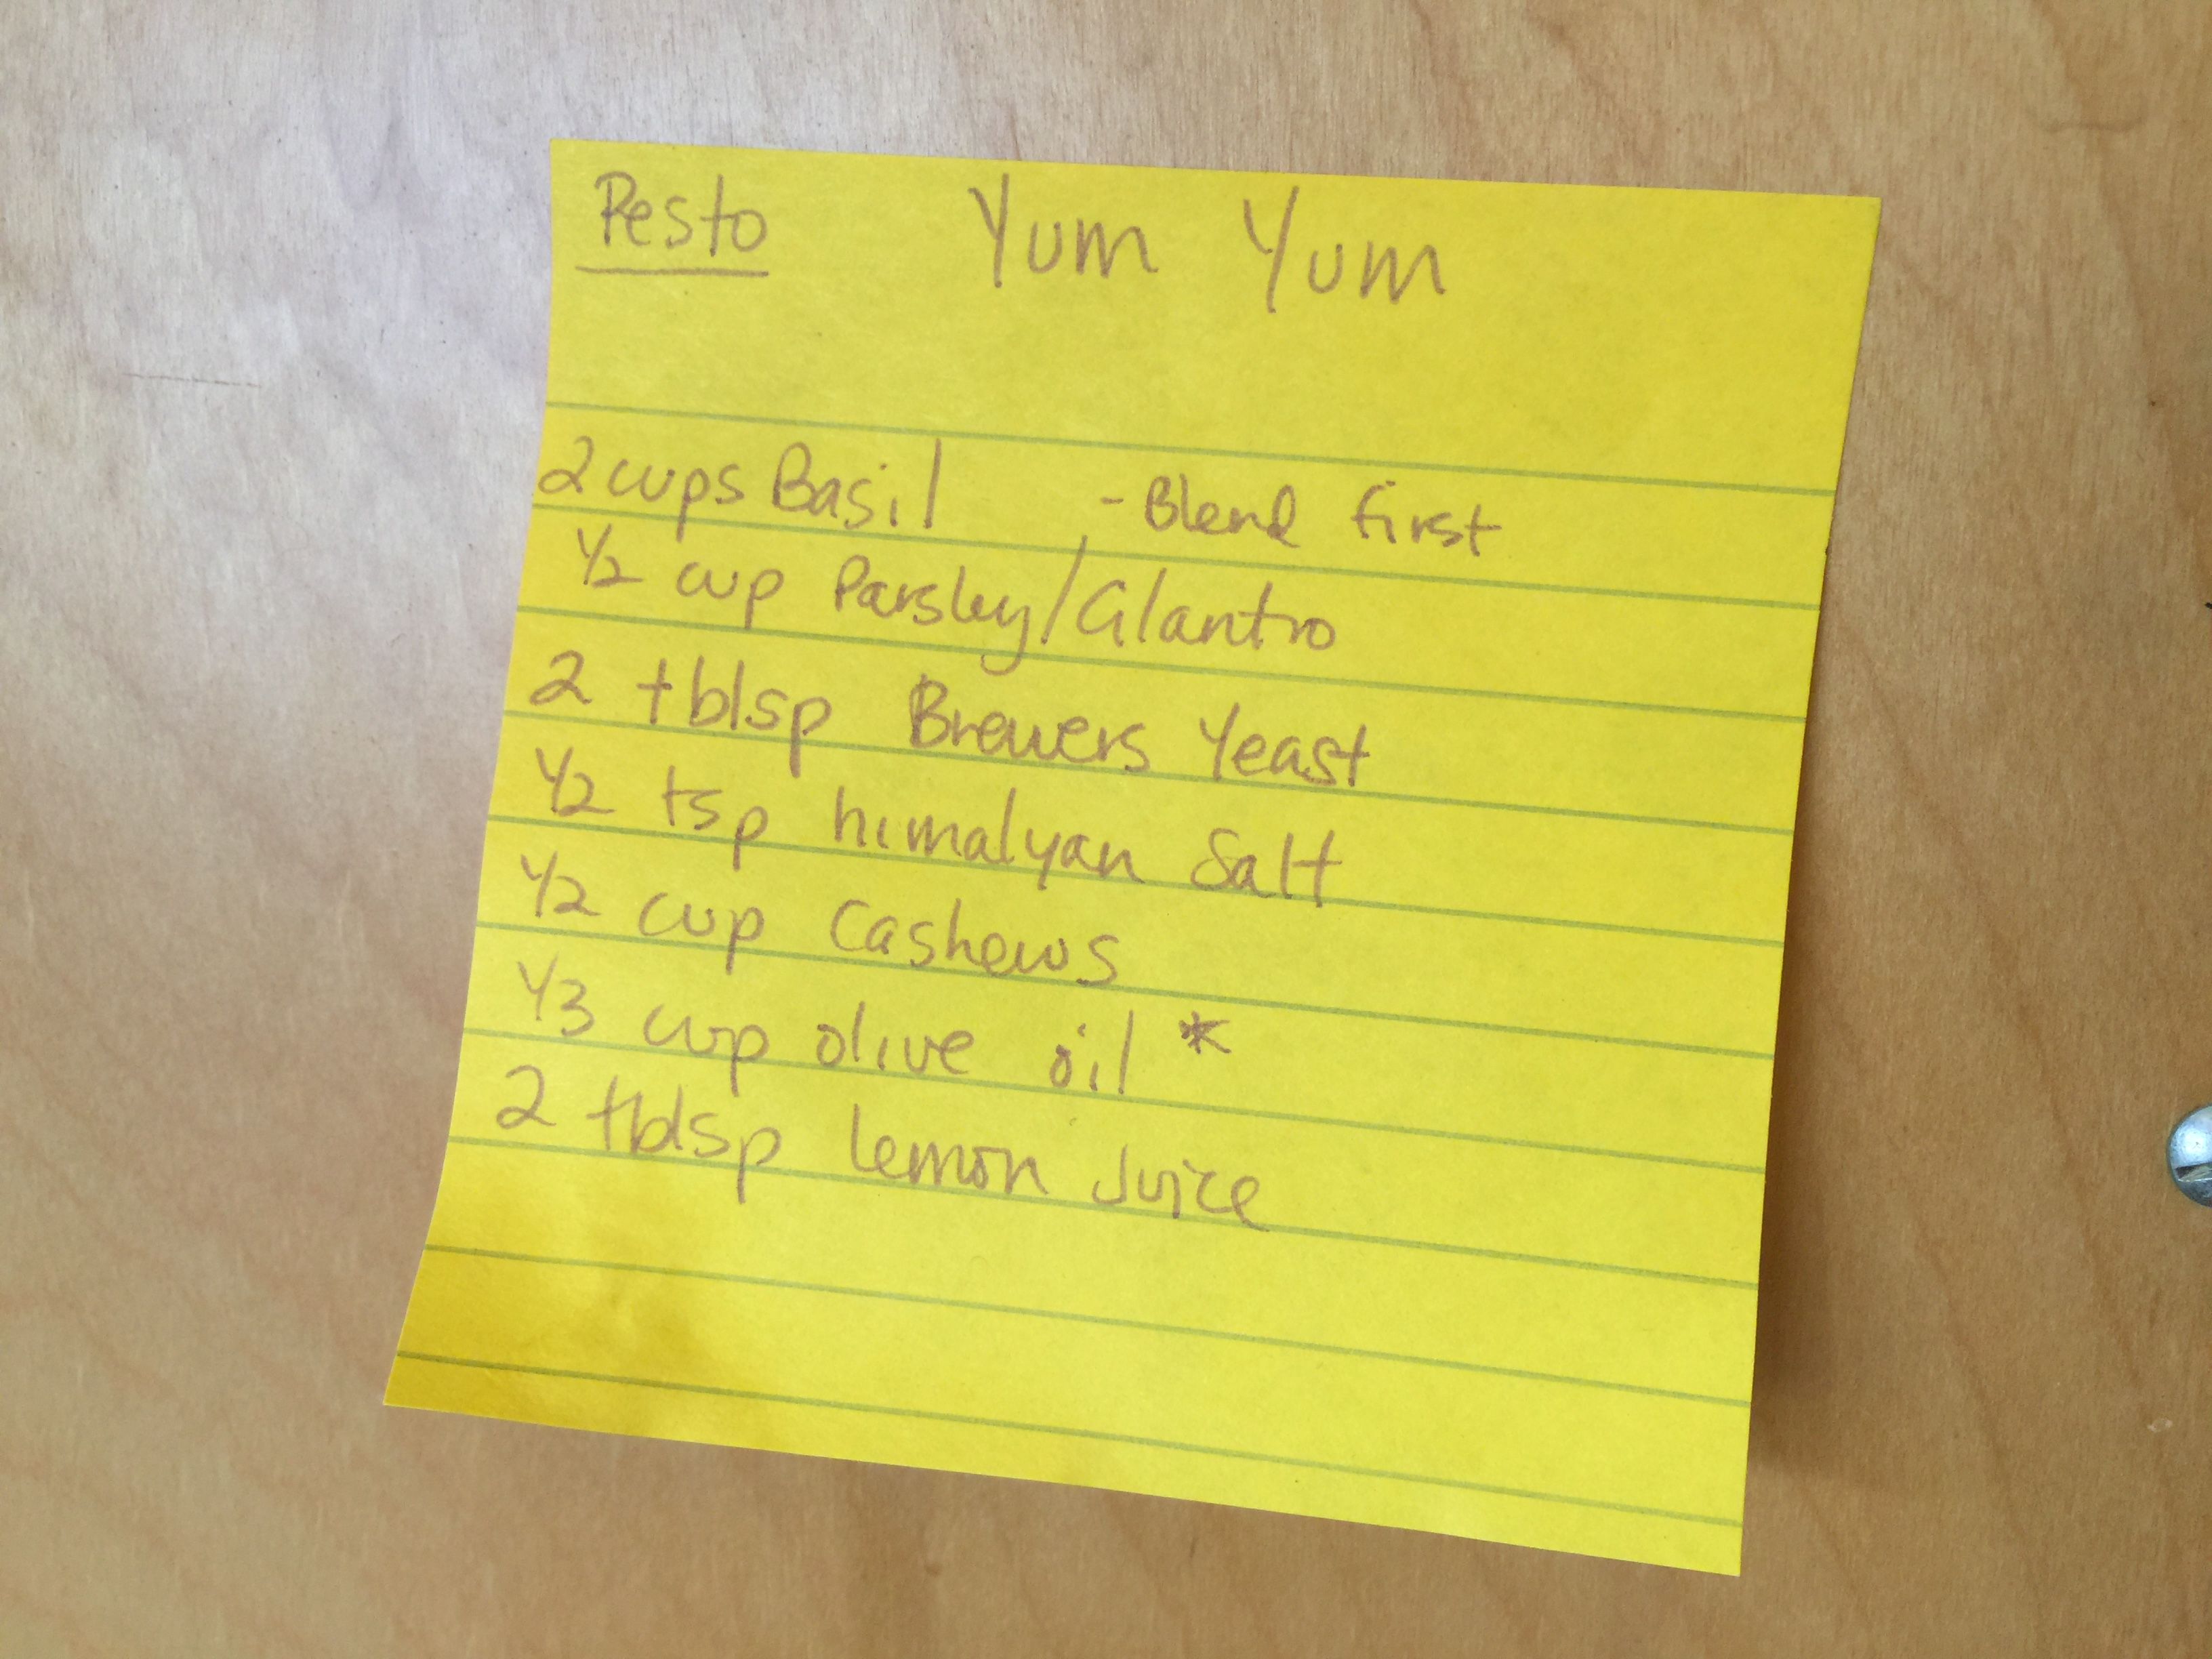 Pesto Yum Yum
2 cups Basil - Blend first
1/2 cup Parsley/Cilantro
2 tblsp Brewers Yeast
1/2 tsp himalyan Salt
1/2 cup Cashews
1/3 cup olive oil *
2 tblsp lemon Juice